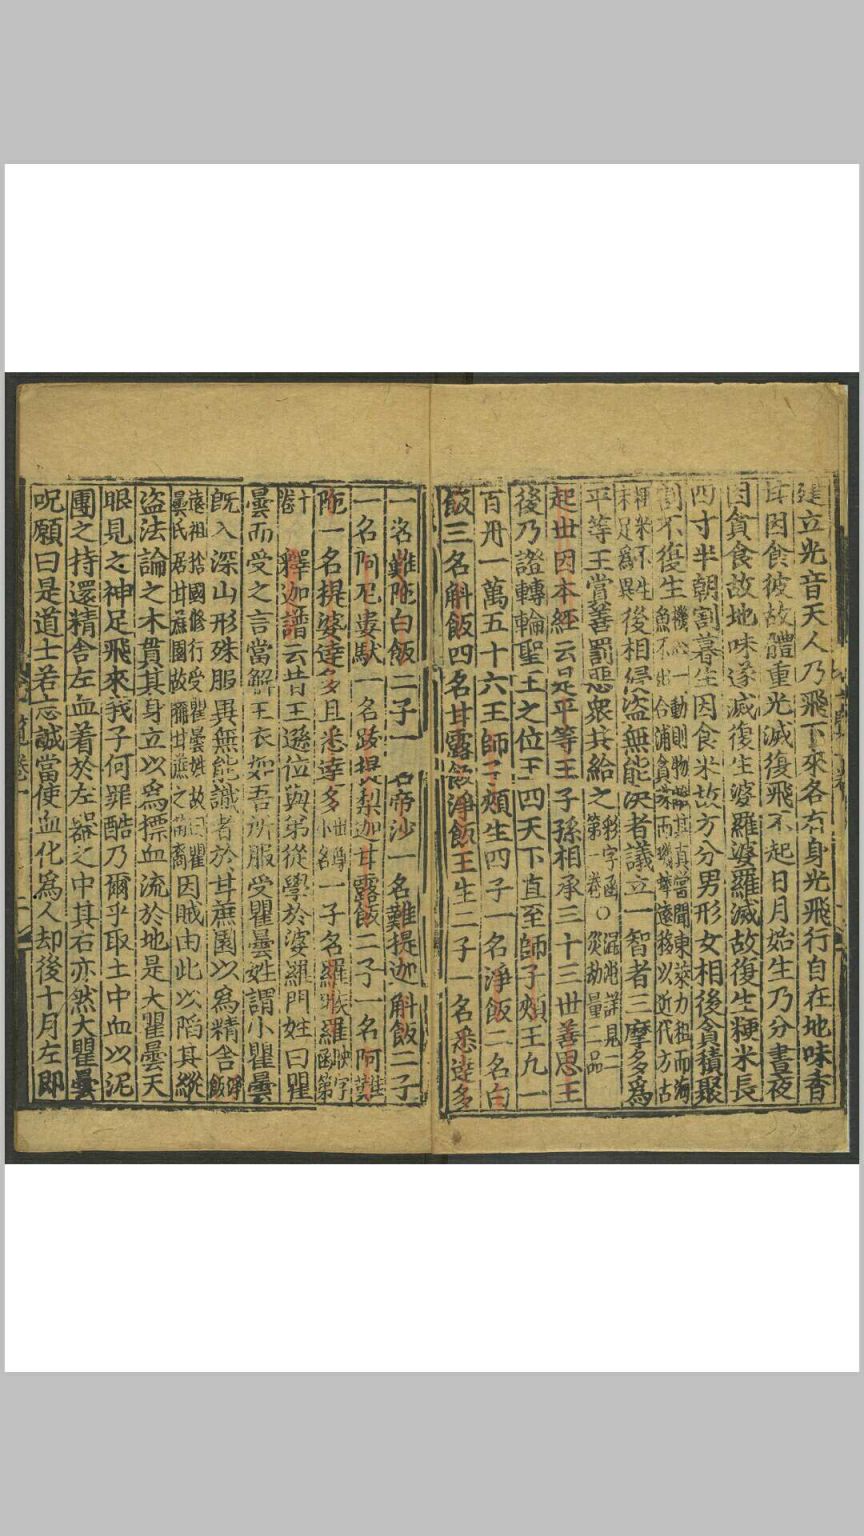 建立光音天人乃飛下來各有身光飛行自在地味香
耳因食彼故體重光滅復飛不起日月始生乃分晝夜
因貪食故地味遂滅復生婆羅婆羅滅故復生粳米長
四寸半朝割暮生因食米故方分男形女相後貪積聚
割不復生
機心一動則物
魚不出合浦貪
其真當聞東染力租而海
遠移以近代方古
粳米不生
末足為異
後相侵盜無能决者議立一智者三摩多為
平等王賞善罰惡衆共給之
第一卷○災劫量二品
起世因本經云是平等王子孫相承三十三世善思王
後乃證轉輪聖王之位王四天下直至師子頰王九一
百卅一萬五十六王師子頰生四子一名淨飯二名白
飯三名斛飯四名甘露飯淨飯王生二子一名悉達多
一名難陁白飯二子一名帝沙一名難提迦斛飯二子
一名阿尼婁馱一名跋提梨迦甘露飯二子一名阿難
陁一名提婆達多且悉達多
世尊
小名
一子名羅睺羅
十
卷
釋迦譜云昔王遜位與弟從學於婆羅門姓曰瞿
曇而受之言當解王衣如吾所服受瞿曇姓謂小瞿曇
旣入深山形殊服異無能識者於甘蔗園以為精舍
遠祖捨國修行受瞿曇姓故曰瞿
曇氏居甘蔗園故稱甘蔗之苗裔
因賊由此以陷其縱
盜法論之木貫其身立以為摽血流於地是大瞿曇天
眼見之神足飛來我子何罪酷乃爾乎取土中血以泥
團之持還精舍左血着於左器之中其右亦然大瞿曇
呪願曰是道士若志誠當使血化為人却後十月左即